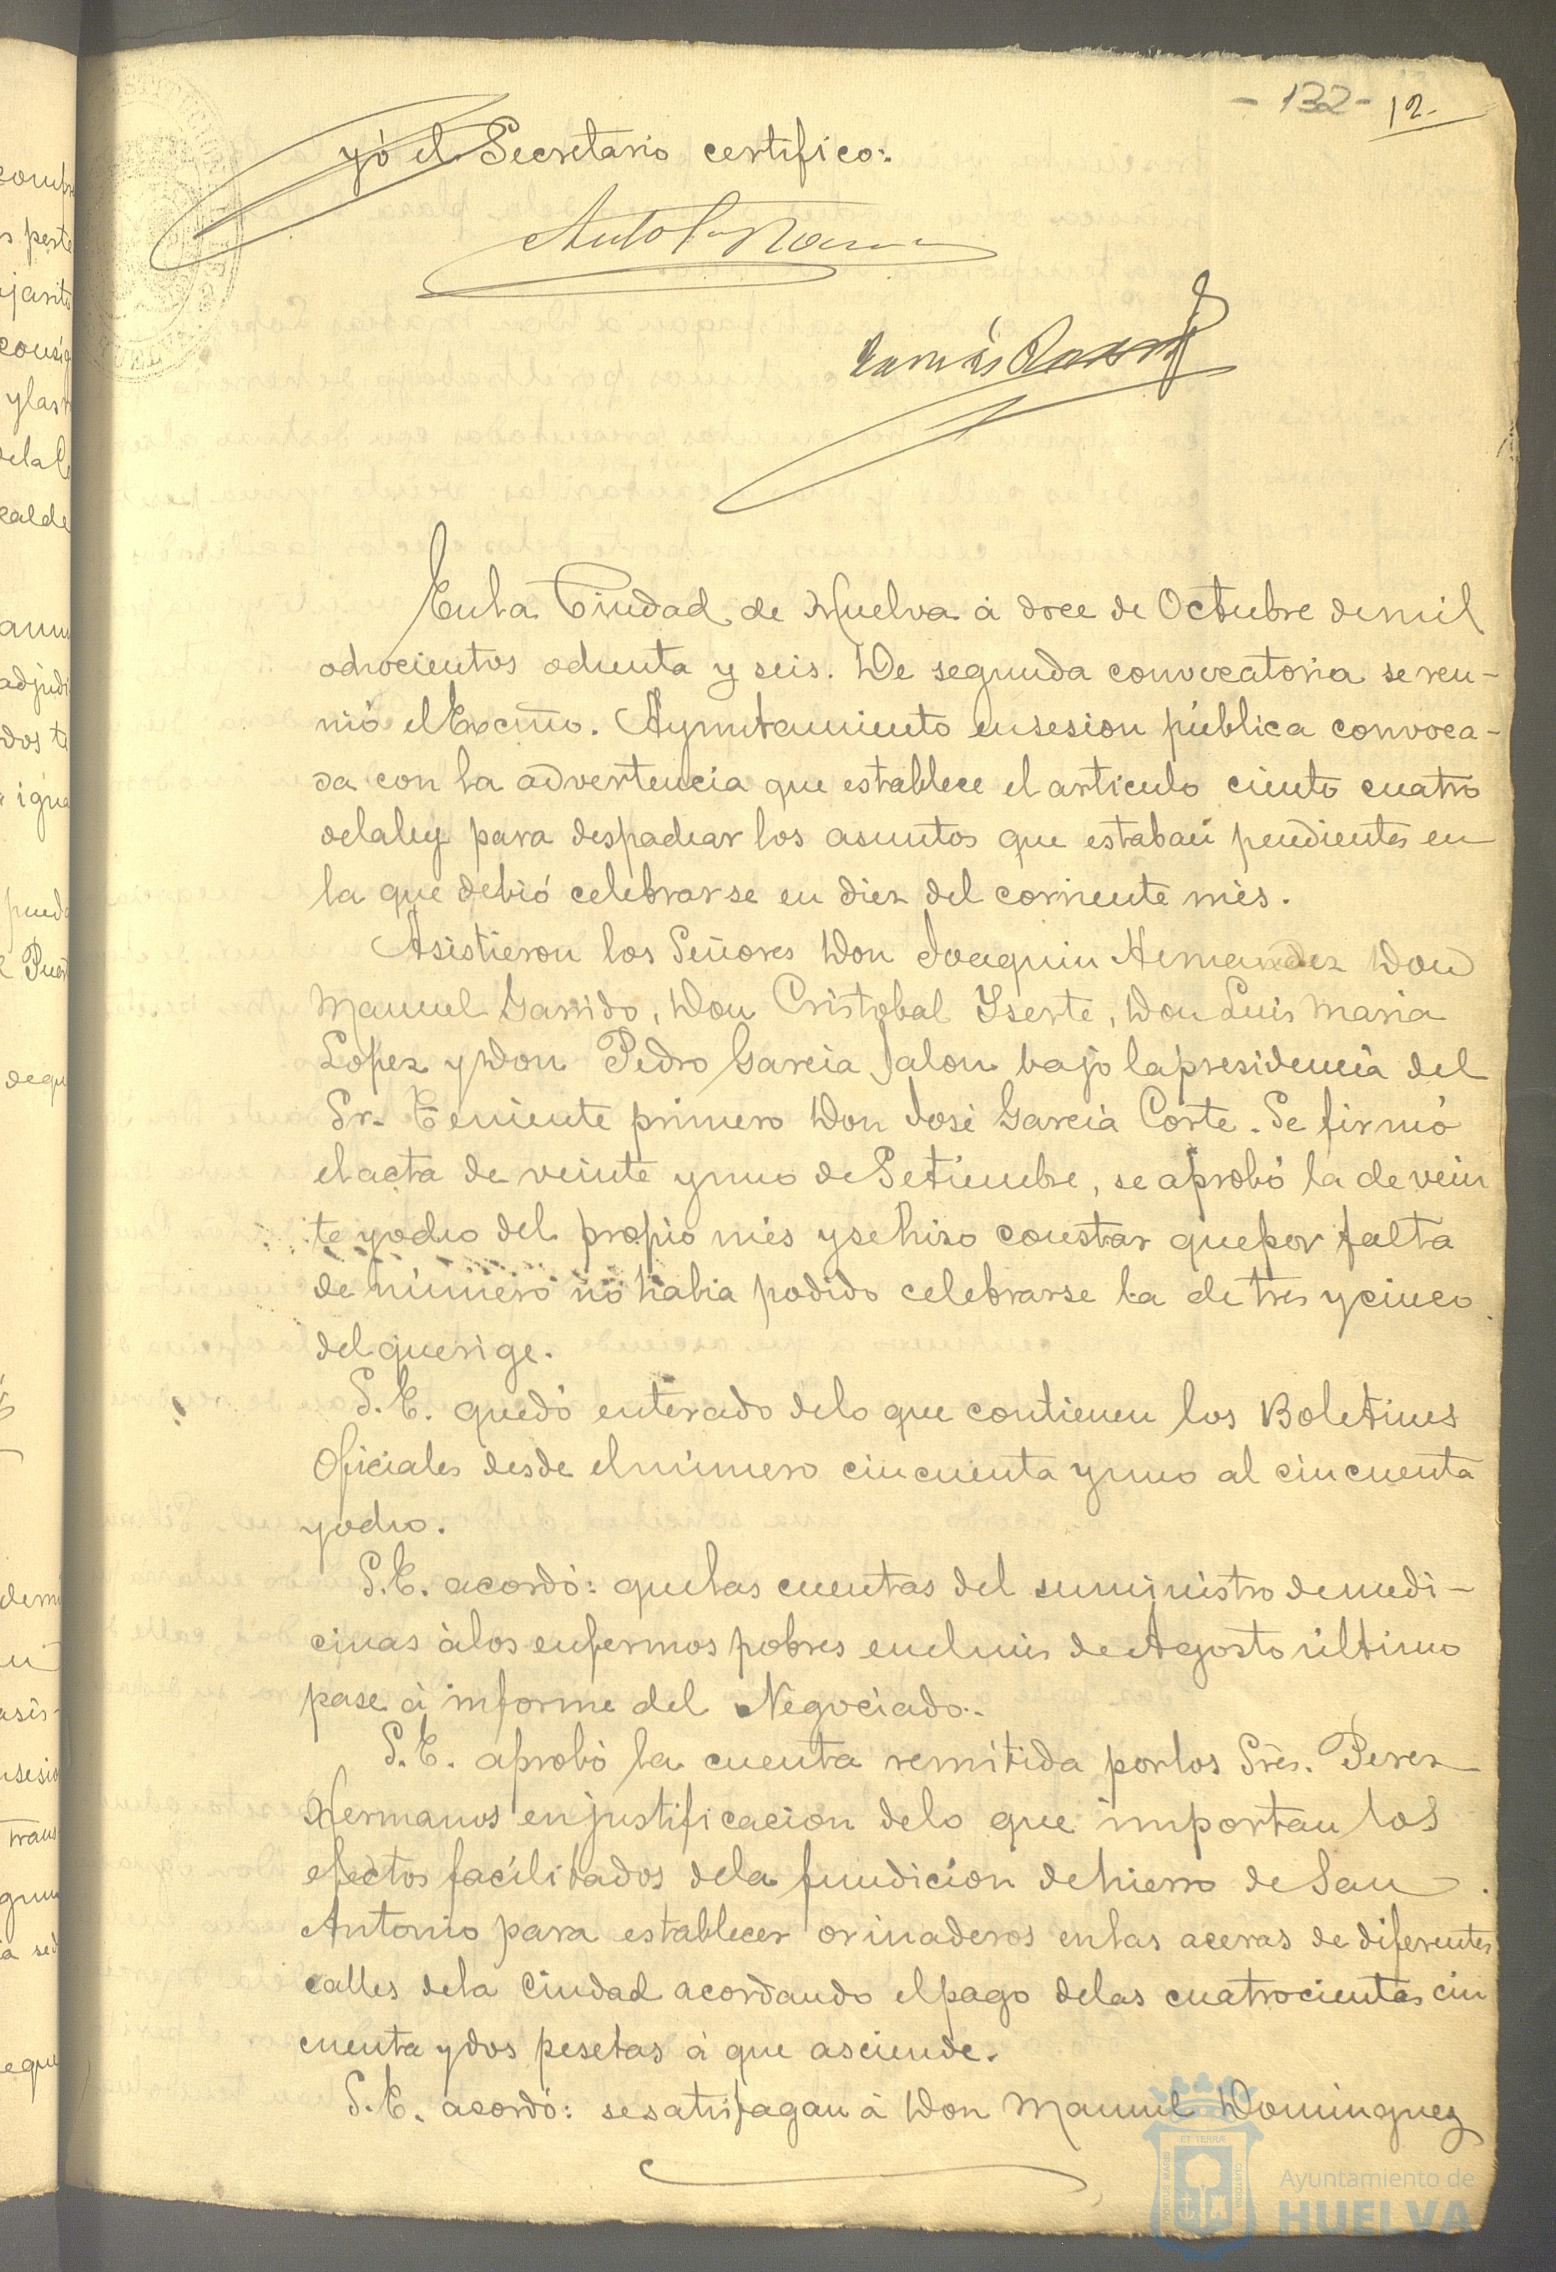 - 132 - 12.
yó el Secretario certifico:
En la Ciudad de Huelva á doce de Octubre de mil
ochocientos ochenta y seis. De segunda convocatoria se reu-
nió el Excmo. Ayuntamiento en sesion pública convoca-
da con la advertencia que establece el articulo ciento cuatro
de la ley para despachar los asuntos que estaban pendientes en
la que debió celebrarse en diez del corriente més.
Asistieron los Señores Don Joaquin Hernandez Don
Manuel Garrido, Don Cristobal Yserte, Don Luis Maria
Lopez y Don Pedro Garcia Jalon bajo la presidencia del
Sr. Teniente primero Don José Garcia Corte. Se firmó
el acta de veinte y uno de Setiembre, se aprobó la de vein
te y ocho del propio més y se hizo constar que por falta
de número no habia podido celebrarse la de tres y cinco
del que rige.
S. E. quedó enterado de lo que contienen los Boletines
Oficiales desde el número cincuenta y uno al cincuenta
y ocho.
S. E. acordó: que las cuentas del suministro de medi-
cinas á los enfermos pobres en el mes de Agosto último
pase á informe del Negociado.
S. E. aprobó la cuenta remitida por los Sres. Perez
Hermanos en justificacion de lo que importan los
efectos facilitados de la fundicion de hierro de San
Antonio para establecer orinaderos en las aceras de diferentes
calles de la Ciudad acordando el pago de las cuatrocientas cin
cuenta y dos pesetas á que asciende.
S. E. acordó: se satisfagan á Don Manuel Dominguez
Ayuntamiento de
HUELVA